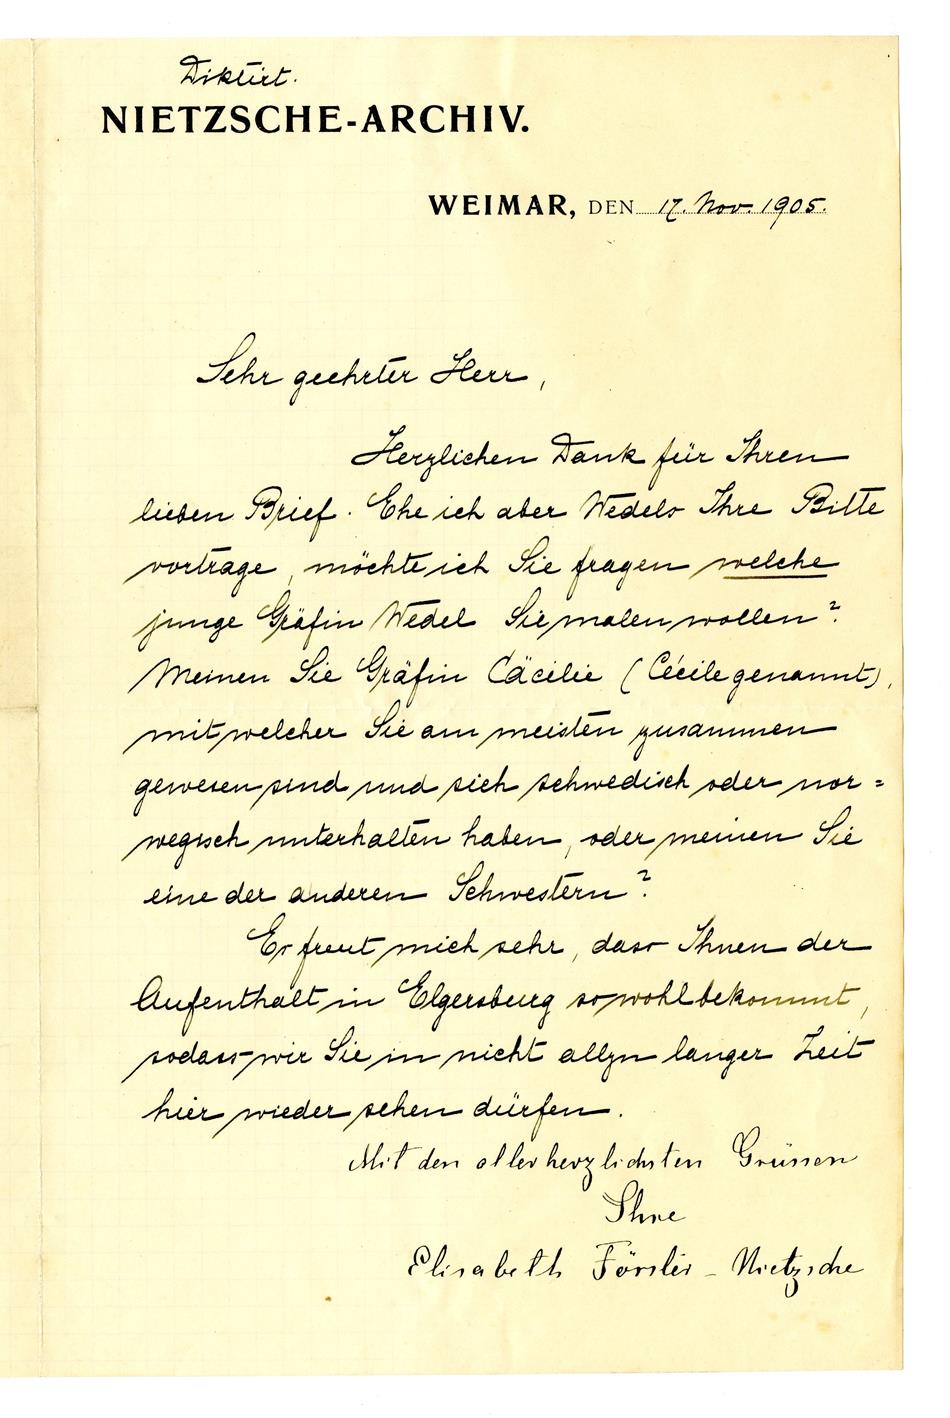 Diktirt.
NIETZSCHE-ARCHIV.
WEIMAR, DEN 17. Nov. 1905.
Sehr geehrter Herr,
Herzlichen Dank für Ihren
lieben Brief. Ehe ich aber Wedels Ihre Bitte
vortrage, möchte ich Sie fragen welche
junge Gräfin Wedel Sie malen wollen?
Meinen Sie Gräfin Cäcilie (Cécile genannt),
mit welcher Sie am meisten zusammen
gewesen sind und sich schwedisch oder nor=
wegisch unterhalten haben, oder meinen Sie
eine der anderen Schwestern?
Es freut mich sehr, dass Ihnen der
Aufenthalt in Elgersburg so wohl bekommt,
sodass wir Sie in nicht allzu langer Zeit
hier wieder sehen dürfen.
Mit den allerherzlichsten Grüssen
Ihre
Elisabeth Förster-Nietzsche